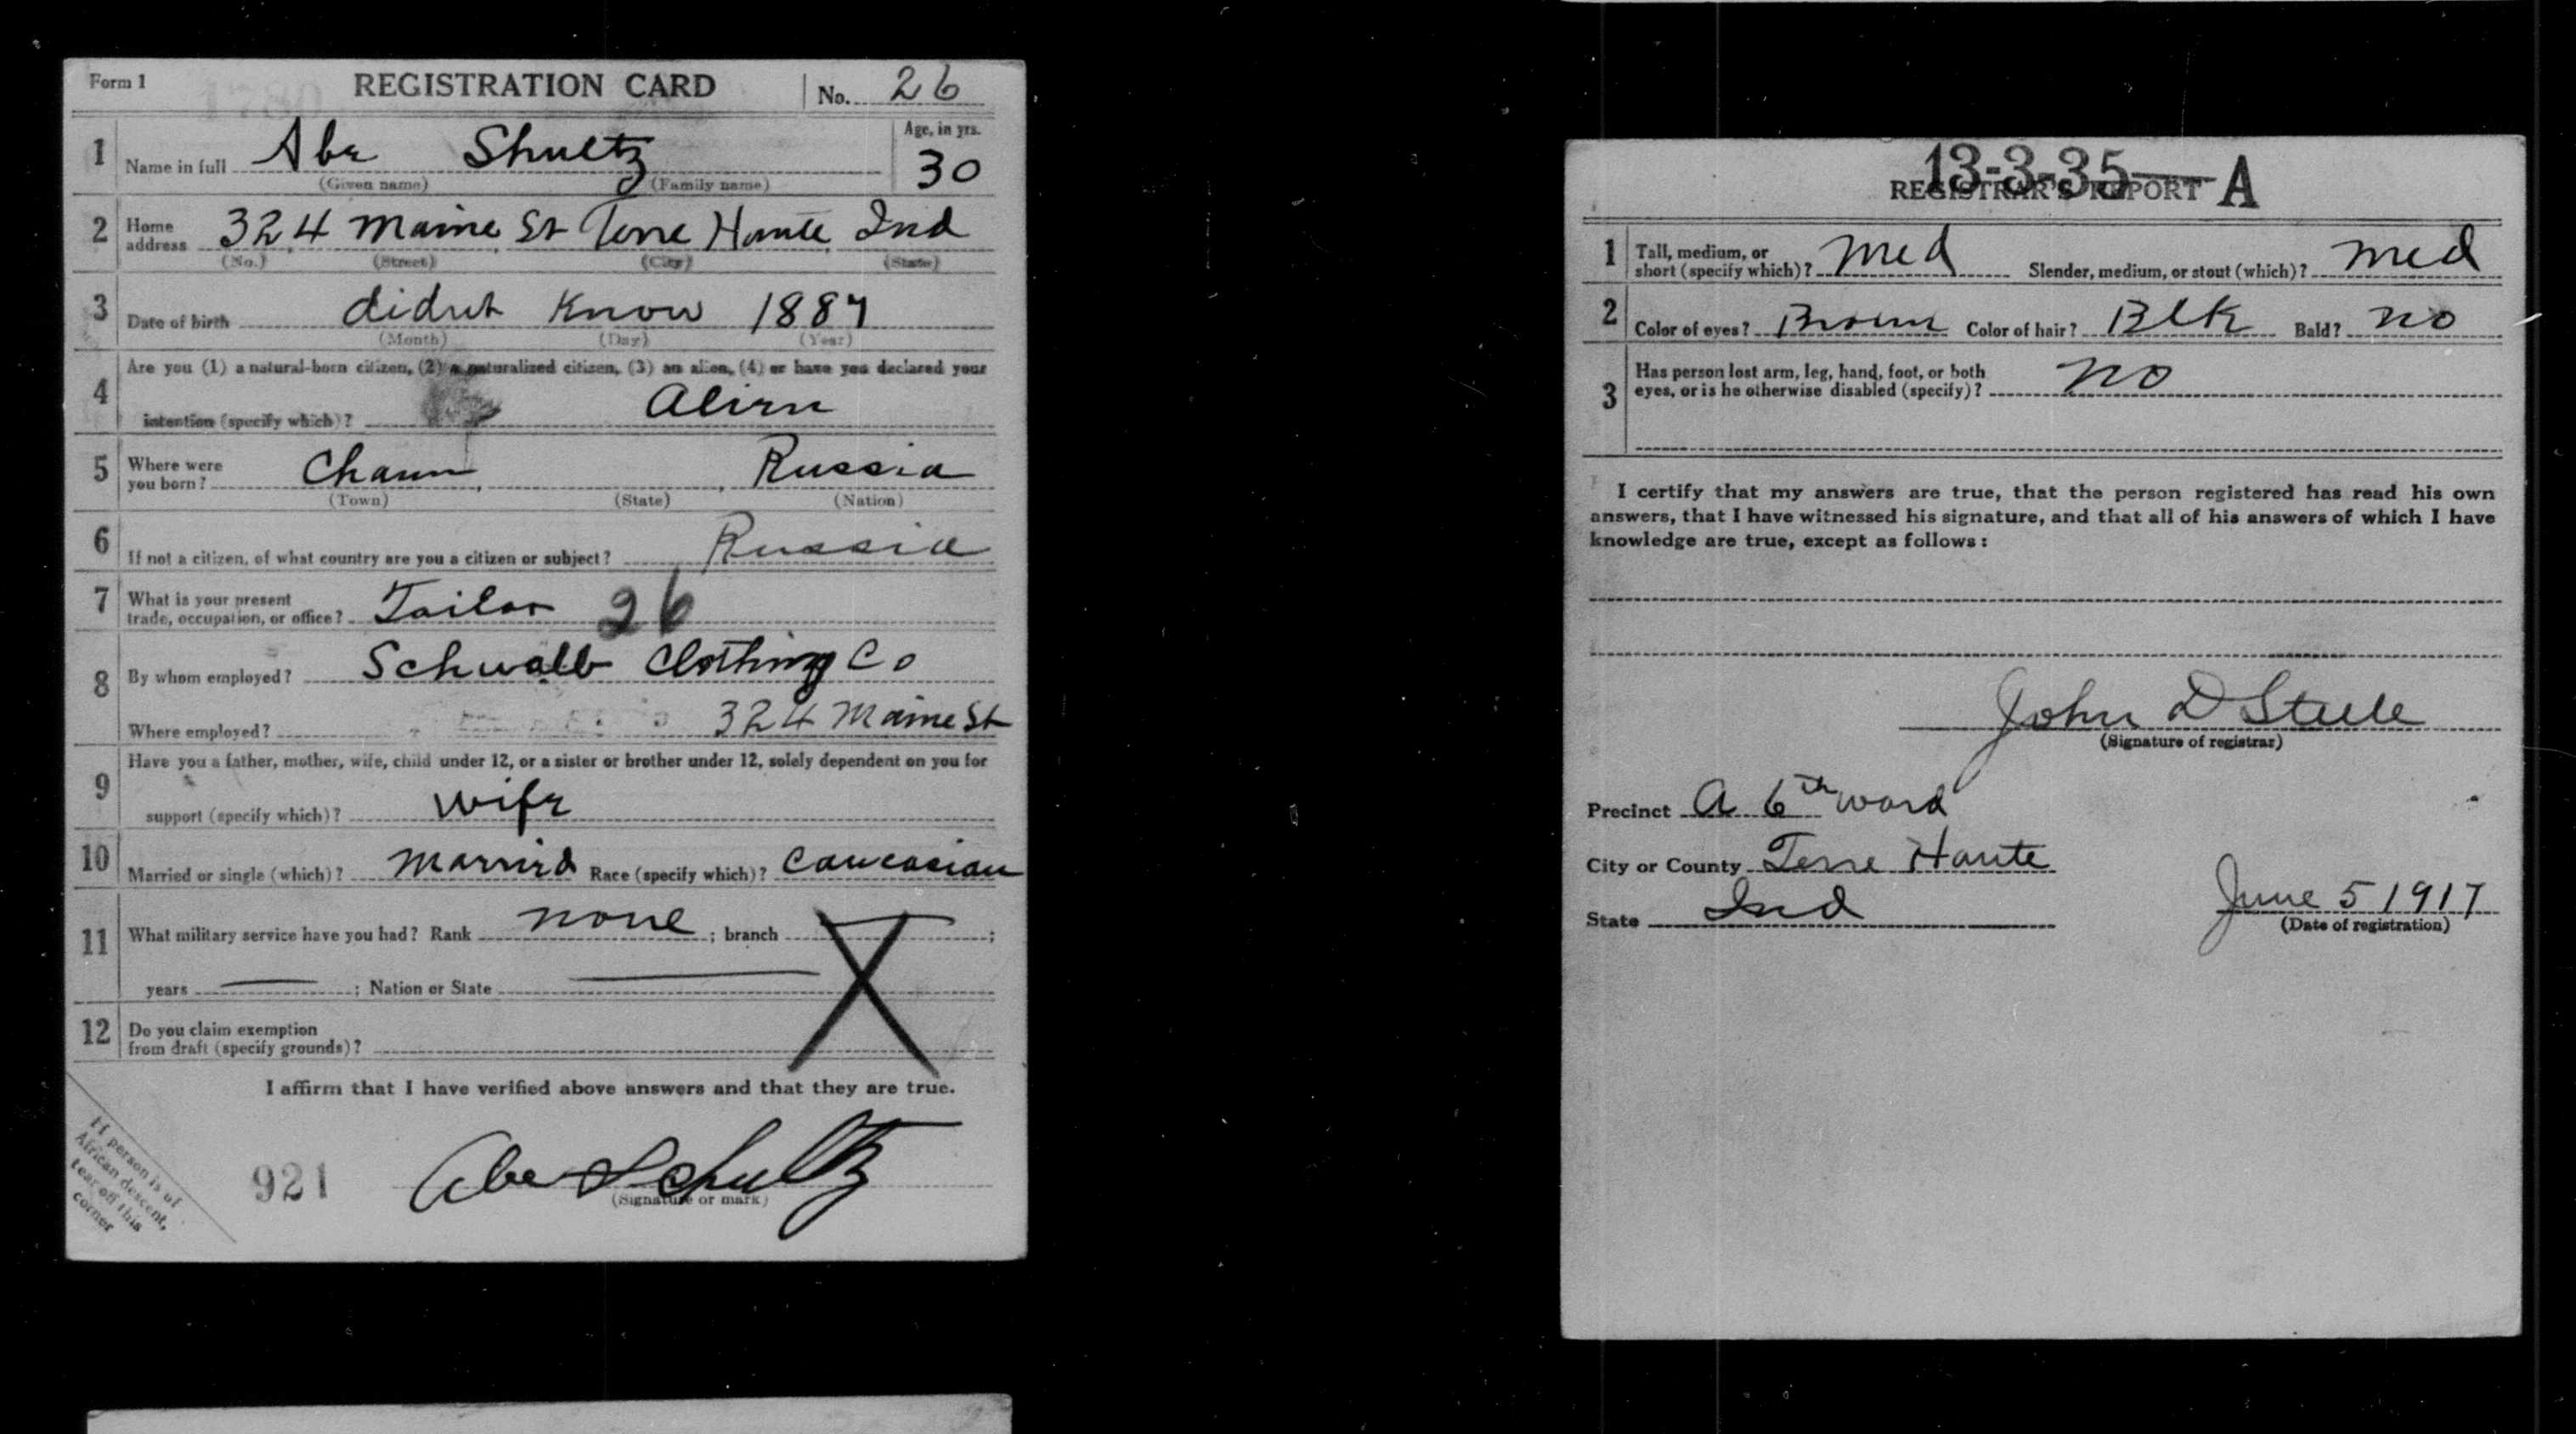 Form 1 REGISTRATION CARD No. 26
1 Name in full Abe Shultz Age, in yrs. 30
(Given name) (Family name)
2 Home address 324 Maine St Terre Haute Ind
(No.) (Street) (City) (State)
3 Date of birth didnt Know 1887
(Month) (Day) (Year)
4 Are you (1) a natural-born citizen, (2) a naturalized citizen, (3) an alien, (4) or have you declared your
intention (specify which)? Alien
5 Where were you born? Russia
(Town) (State) (Nation)
6 If not a citizen, of what country are you a citizen or subject? Russia
7 What is your present trade, occupation, or office? Tailor 26
8 By whom employed? Schwalb Clothing Co
Where employed? 324 Maine St
9 Have you a father, mother, wife, child under 12, or a sister or brother under 12, solely dependent on you for
support (specify which)? wife
10 Married or single (which)? Married Race (specify which)? Caucasian
11 What military service have you had? Rank none ; branch ;
years ; Nation or State
12 Do you claim exemption from draft (specify grounds)?
X
I affirm that I have verified above answers and that they are true.
921 Abe Schultz
(Signature or mark)
If person is of
African descent,
tear off this
corner
13-3-35 A
REGISTRAR'S REPORT
1 Tall, medium, or short (specify which)? Med Slender, medium, or stout (which)? Med
2 Color of eyes? Brown Color of hair? Blk Bald? no
3 Has person lost arm, leg, hand, foot, or both eyes, or is he otherwise disabled (specify)? no
I certify that my answers are true, that the person registered has read his own
answers, that I have witnessed his signature, and that all of his answers of which I have
knowledge are true, except as follows:
John D Steele
(Signature of registrar)
Precinct A 6th ward
City or County Terre Haute
State Ind June 5 1917
(Date of registration)